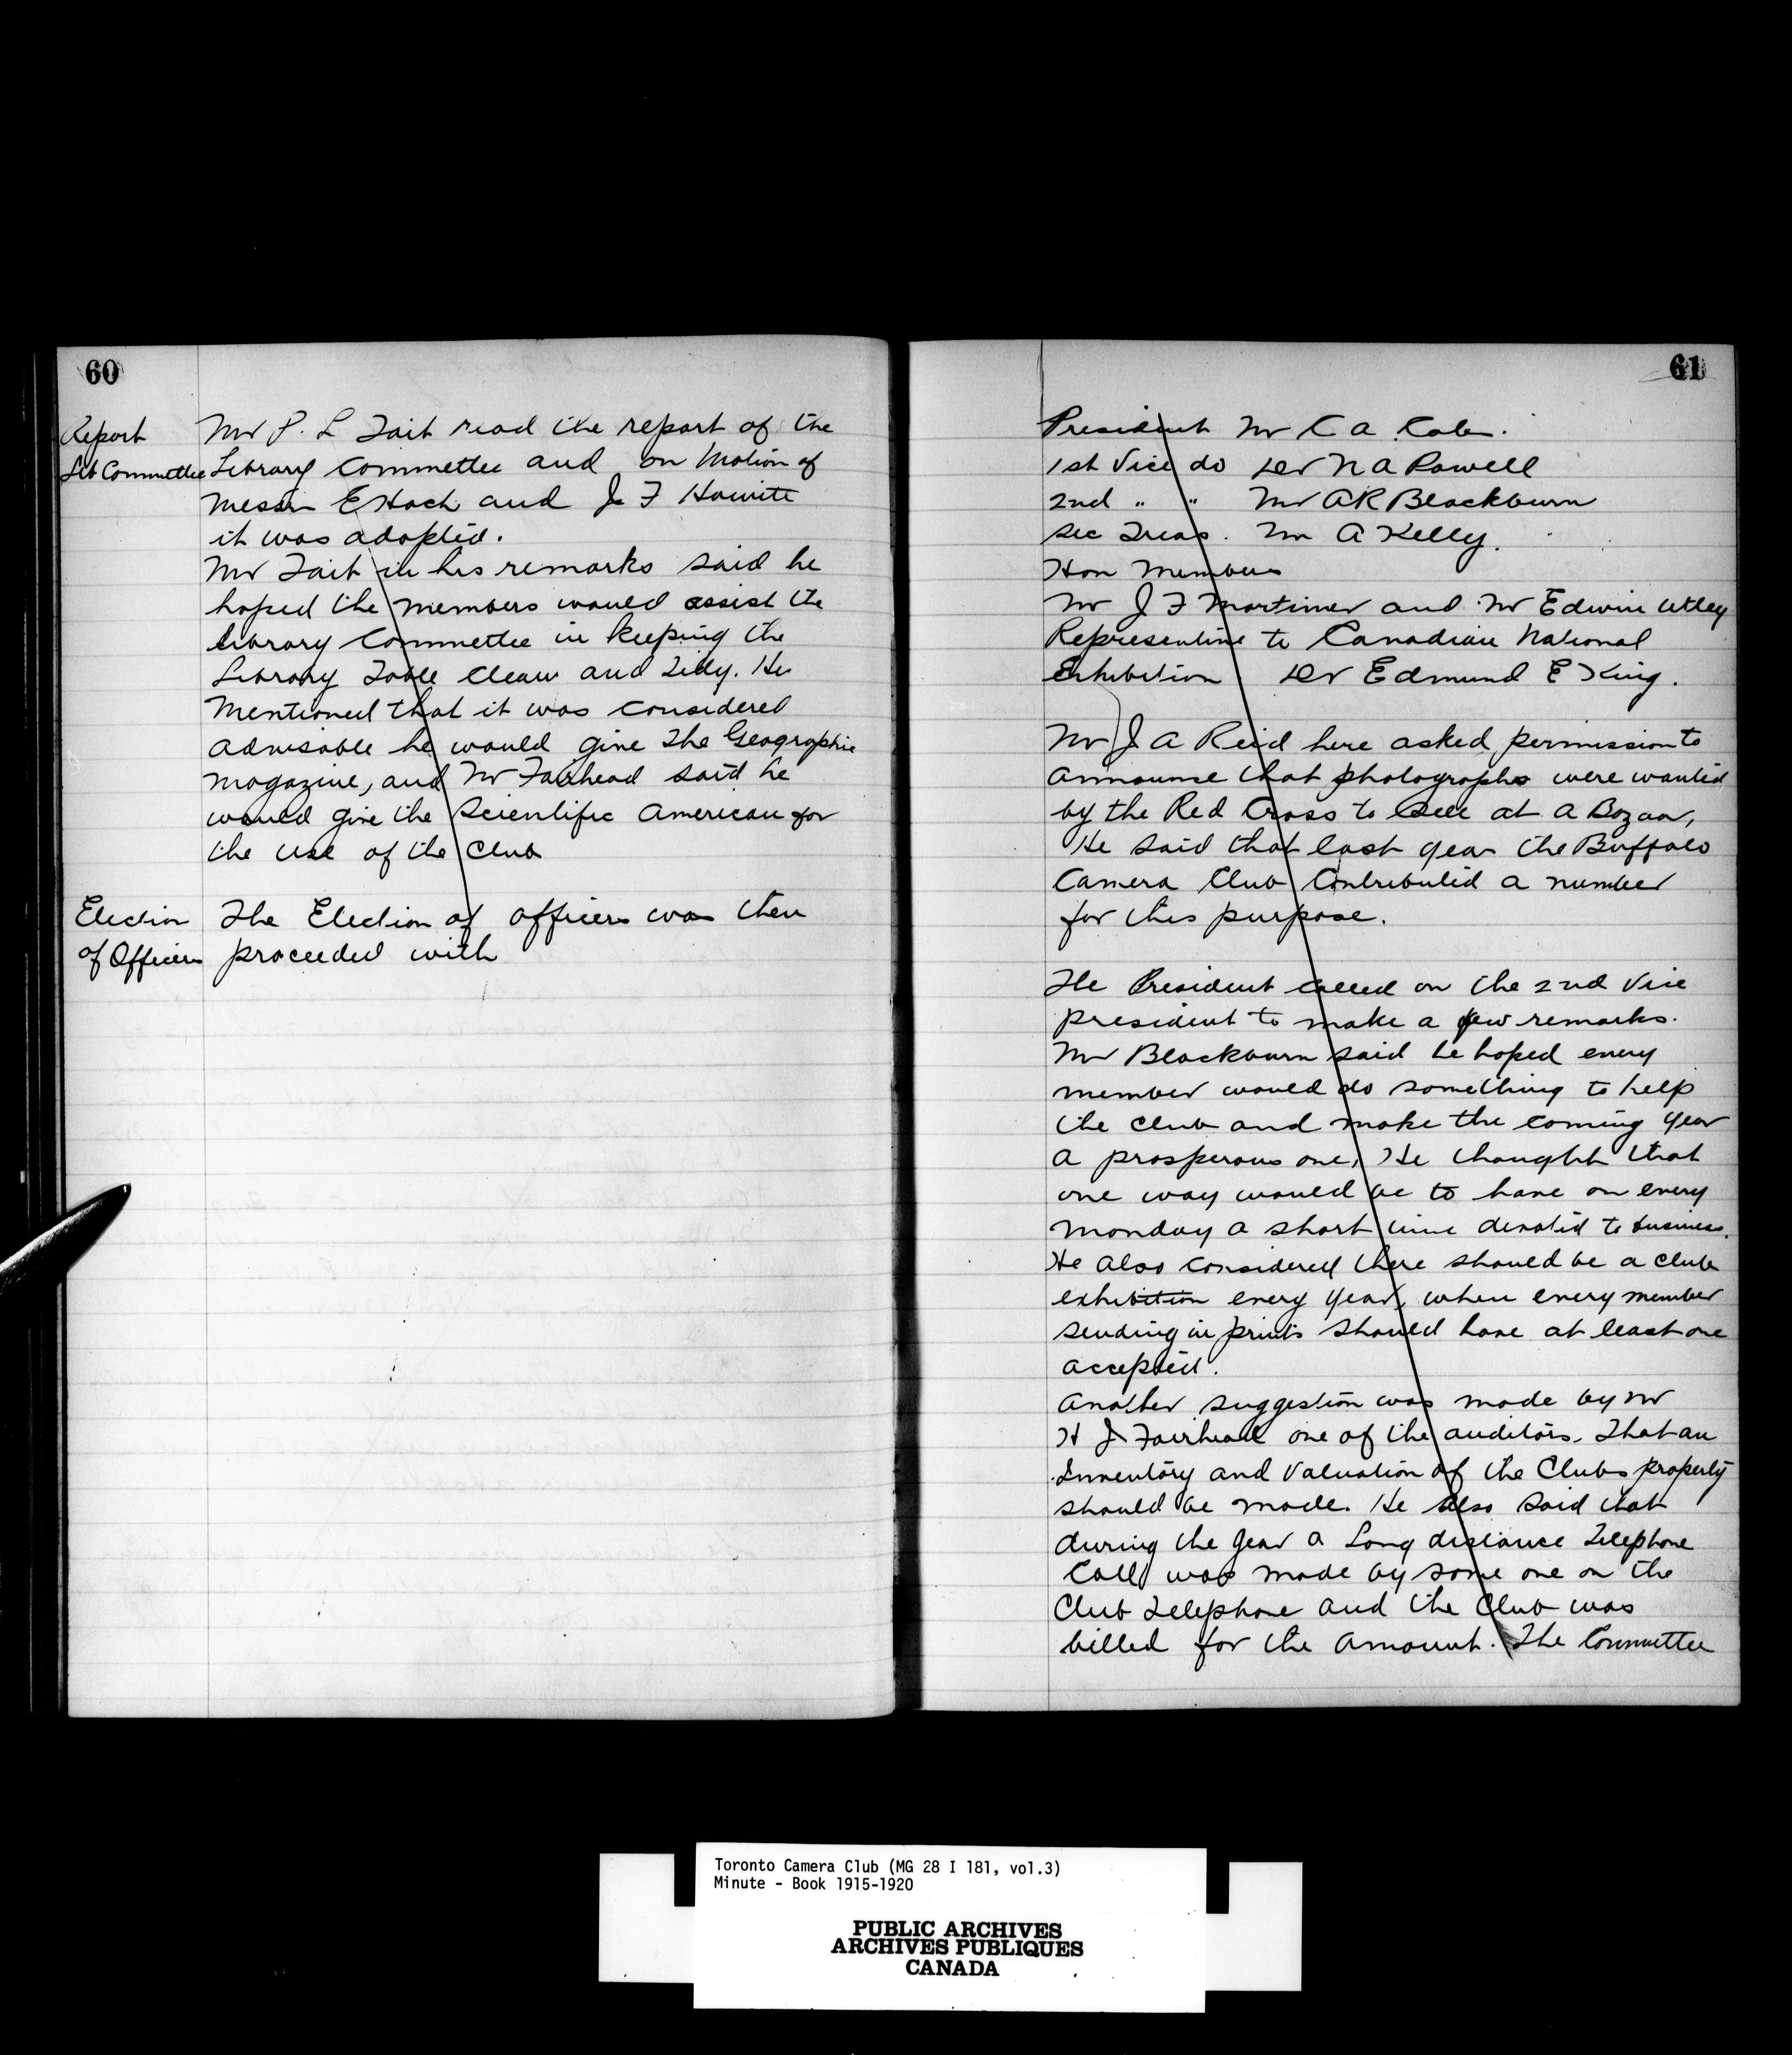 60
Report
Lib Committee
Mr P. L Tait read the report of the
Library Committee and on Motion of
Messrs E Hoch and J F Howitt
it was adopted.
Mr Tait in his remarks said he
hoped the members would assist the
Library Committee in keeping the
Library Table Clean and Tidy. He
Mentioned that it was Considered
advisable he would give The Geographic
magazine, and Mr Fairhead said he
would give the Scientific American for
the use of the Club
Election
of Officers
The Election of officers was then
proceeded with
61
President Mr C A
1st Vice do Dr N A Powell
2nd " " Mr A R Blackburn
Sec Treas. Mr A Kelly.
Hon Members
Mr J F Mortimer and Mr Edwin Utley
Representive to Canadian National
Exhibition Dr Edmund E King.
Mr J A Reid here asked permission to
announce that photographs were wanted
by the Red Cross to Sell at a Bazaar,
He said that last year the Buffalo
Camera Club Contributed a number
for this purpose.
The President called on the 2nd Vice
president to make a few remarks.
Mr Blackburn said he hoped every
member would do something to help
the Club and make the coming year
a prosperous one, He thought that
one way would be to have on every
Monday a short time devoted to business.
He also considered there should be a Club
exhibition every year, when every member
sending in prints should have at least one
accepted.
Another suggestion was made by Mr
H J Fairhead one of the auditors. That an
Inventory and Valuation of the Clubs property
should be made. He also said that
during the year a Long distance Telephone
Call was made by some one on the
Club Telephone and the Club was
billed for the amount. The Committee
Toronto Camera Club (MG 28 I 181, vol.3)
Minute - Book 1915-1920
PUBLIC ARCHIVES
ARCHIVES PUBLIQUES
CANADA